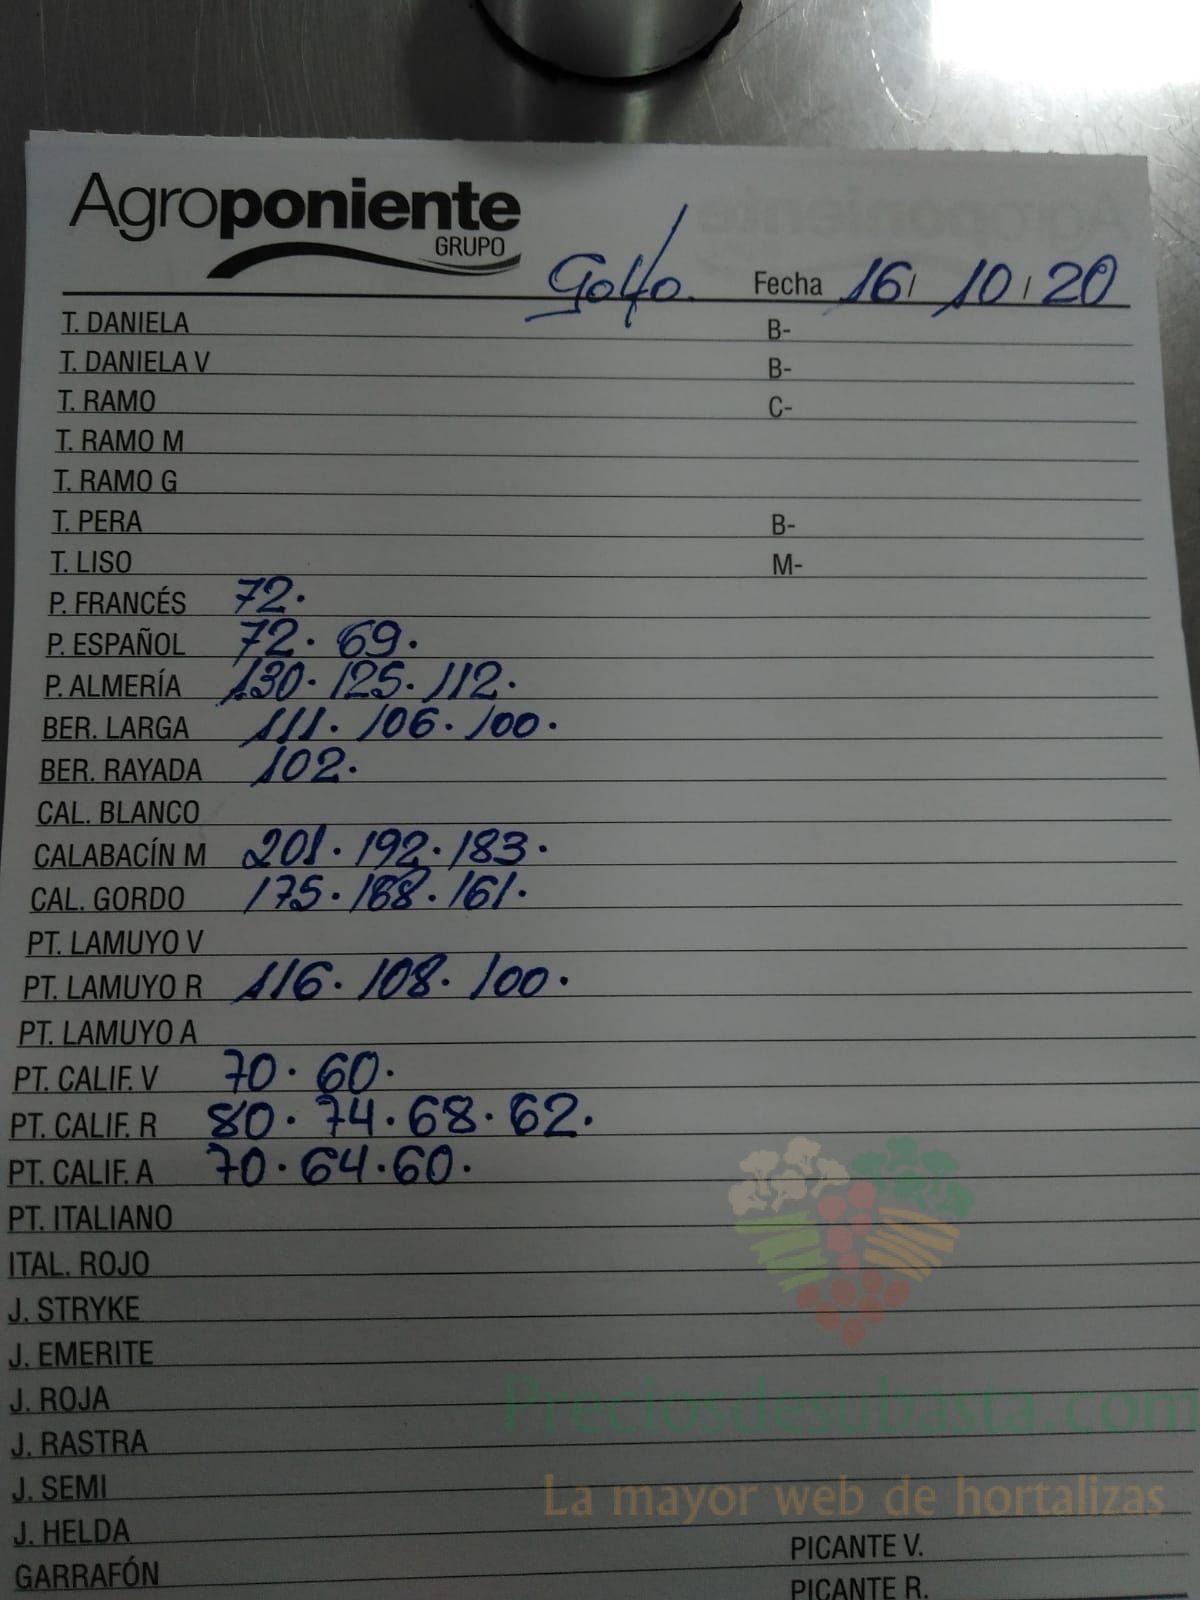 Agroponiente
GRUPO
Golfo. Fecha 16/ 10/20
T. DANIELA B-
T. DANIELA V B-
T. RAMO C-
T. RAMO M
T. RAMO G
T. PERA B-
T. LISO M-
P. FRANCÉS 72.
P. ESPAÑOL 72. 69.
P. ALMERÍA 130. 125. 112.
BER. LARGA 111. 106. 100.
BER. RAYADA 102.
CAL. BLANCO
CALABACÍN M 201. 192. 183.
CAL. GORDO 175. 168. 161.
PT. LAMUYO V
PT. LAMUYO R 116. 108. 100.
PT. LAMUYO A
PT. CALIF. V 70. 60.
PT. CALIF. R 80. 74. 68. 62.
PT. CALIF. A 70. 64. 60.
PT. ITALIANO
ITAL. ROJO
J. STRYKE
J. EMERITE
J. ROJA
J. RASTRA
J. SEMI
J. HELDA PICANTE V.
GARRAFÓN PICANTE R.
Preciosdesubasta.com
La mayor web de hortalizas